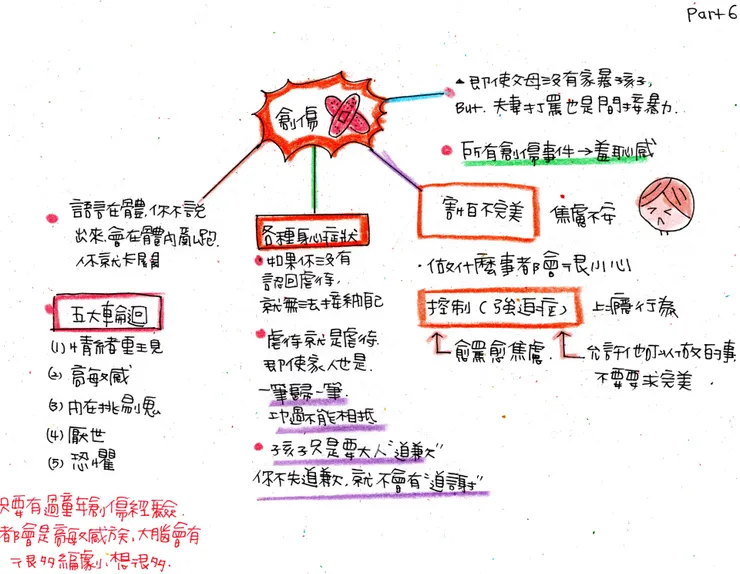 Part 6
創傷
▲即使文母沒有家暴孩子,
But. 夫妻打罵也是間接暴力.
所有創傷事件→羞恥感
害怕不完美
焦慮不安
·做什麼事都會很小心
控制(強迫症)
上癮行為
愈罵愈焦慮.
允許他可以做的事
不要要求完美
語言在體,你不說
出來,會在體內亂跑.
你就卡關
五大輪迴
(1)情緒重現
(2)高敏感
(3)內在挑剔鬼
(4)厭世
(5)恐懼
各種身心症狀
如果你沒有
認回虐待,
就無法接納自己
虐待就是虐待.
即使家人也是.
一筆歸一筆
功過不能相抵
孩子只是要大人"道歉"
你不先道歉,就不會有"道謝"
只要有過童年創傷經驗.
都會是高敏感族,大腦會有
很多編劇,想很多.